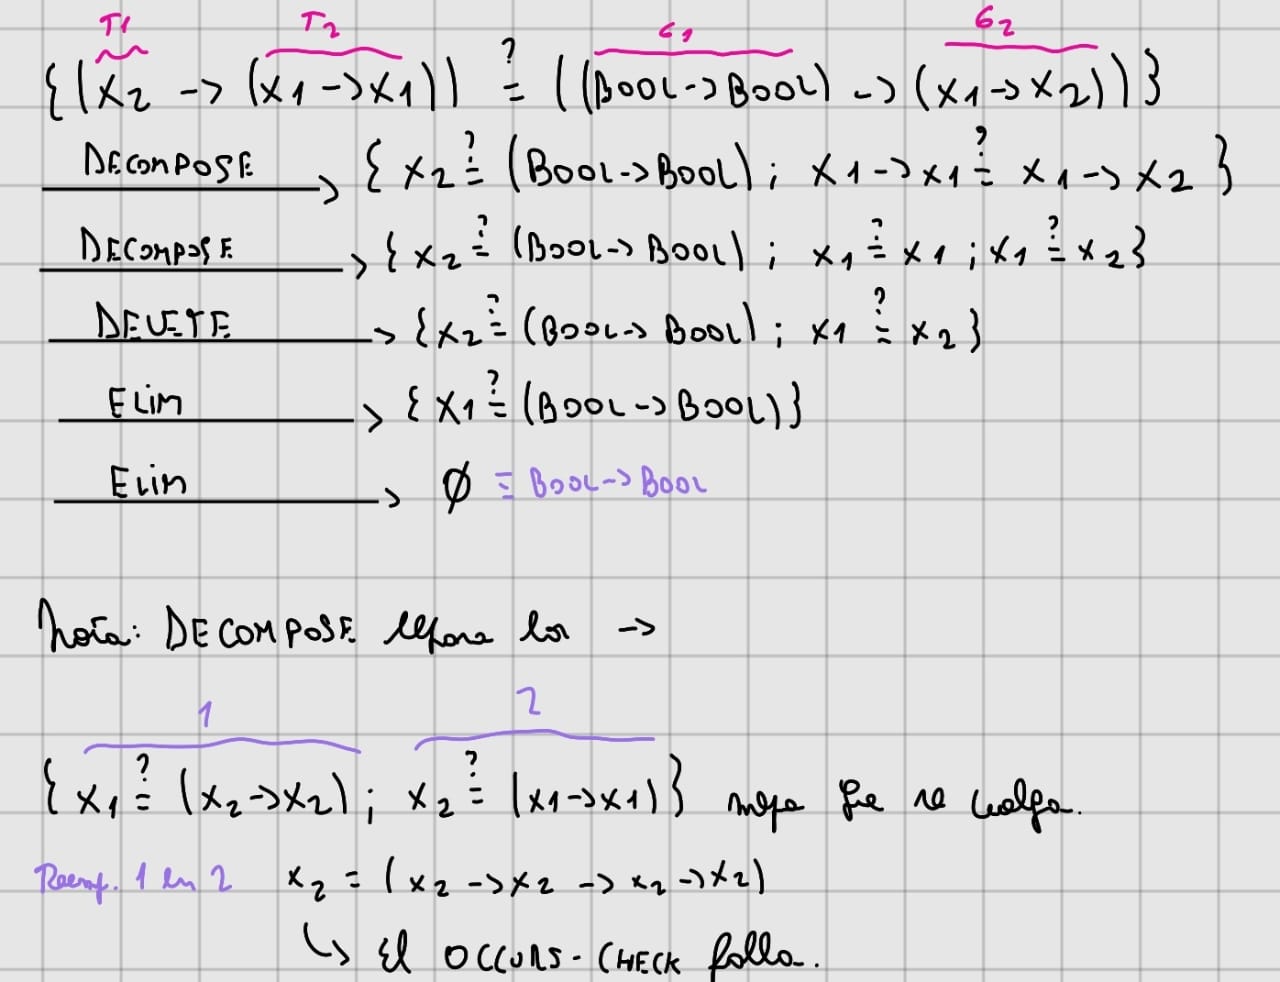 T1 T2 σ1 σ2
{(x2 -> (x1->x1)) ≟ ((Bool->Bool) -> (x1->x2))}
DECOMPOSE {x2 ≟ (Bool->Bool); x1->x1 ≟ x1->x2}
DECOMPOSE {x2 ≟ (Bool->Bool); x1 ≟ x1; x1 ≟ x2}
DELETE {x2 ≟ (Bool->Bool); x1 ≟ x2}
ELIM {x1 ≟ (Bool->Bool)}
ELIM ∅ ≡ Bool->Bool
Nota: DECOMPOSE separa los ->
1 2
{x1 ≟ (x2->x2); x2 ≟ (x1->x1)} que se cuelga.
Reemp. 1 en 2 x2 = (x2->x2 -> x2->x2)
↳ El OCCURS-CHECK falla.